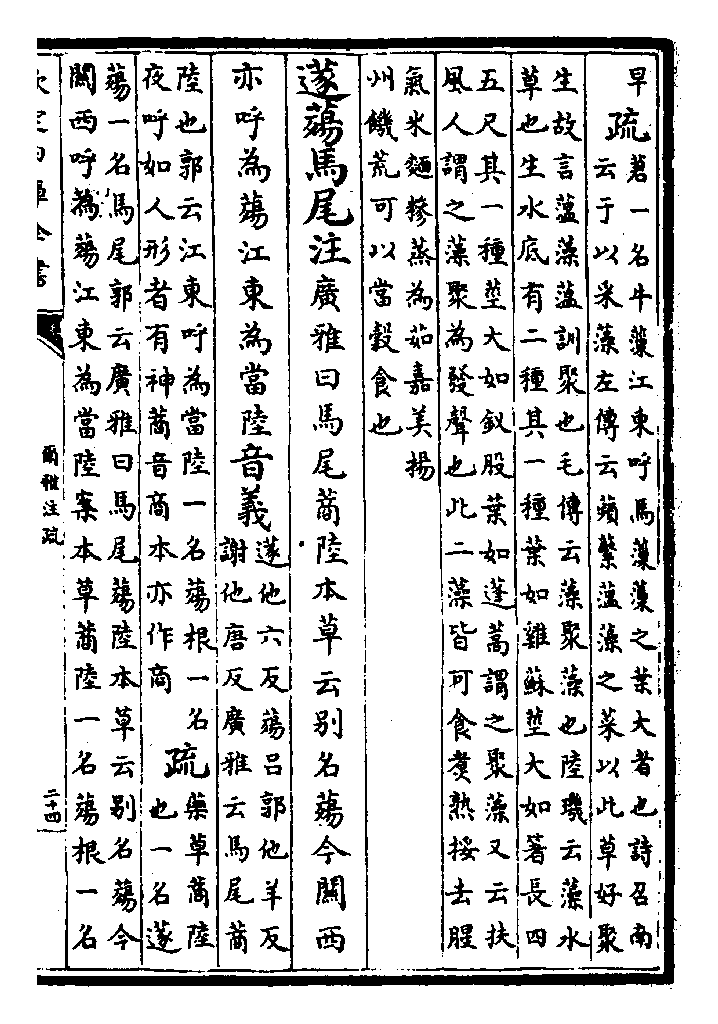 早
疏
莙一名牛藻江東呼馬藻藻之葉大者也詩召南
云于以采藻左傳云蘋蘩薀藻之菜以此草好聚
生故言薀藻薀訓聚也毛傳云藻聚藻也陸璣云藻水
草也生水底有二種其一種葉如雞蘇莖大如箸長四
五尺其一種莖大如釵股葉如蓬蒿謂之聚藻又云扶
風人謂之藻聚為發聲也此二藻皆可食煑熟挼去腥
氣米麵糝蒸為茹嘉美揚
州饑荒可以當穀食也
蓫薚馬尾注廣雅曰馬尾蔏陸本草云别名薚今闗西
亦呼為薚江東為當陸音義
蓫他六反薚吕郭他羊反
謝他唐反廣雅云馬尾蔏
陸也郭云江東呼為當陸一名薚根一名
夜呼如人形者有神蔏音商本亦作商
疏
藥草蔏陸
也一名蓫
薚一名馬尾郭云廣雅曰馬尾薚陸本草云别名薚今
闗西呼為薚江東為當陸案本草蔏陸一名薚根一名
欽定四庫全書
爾雅注疏
二十四